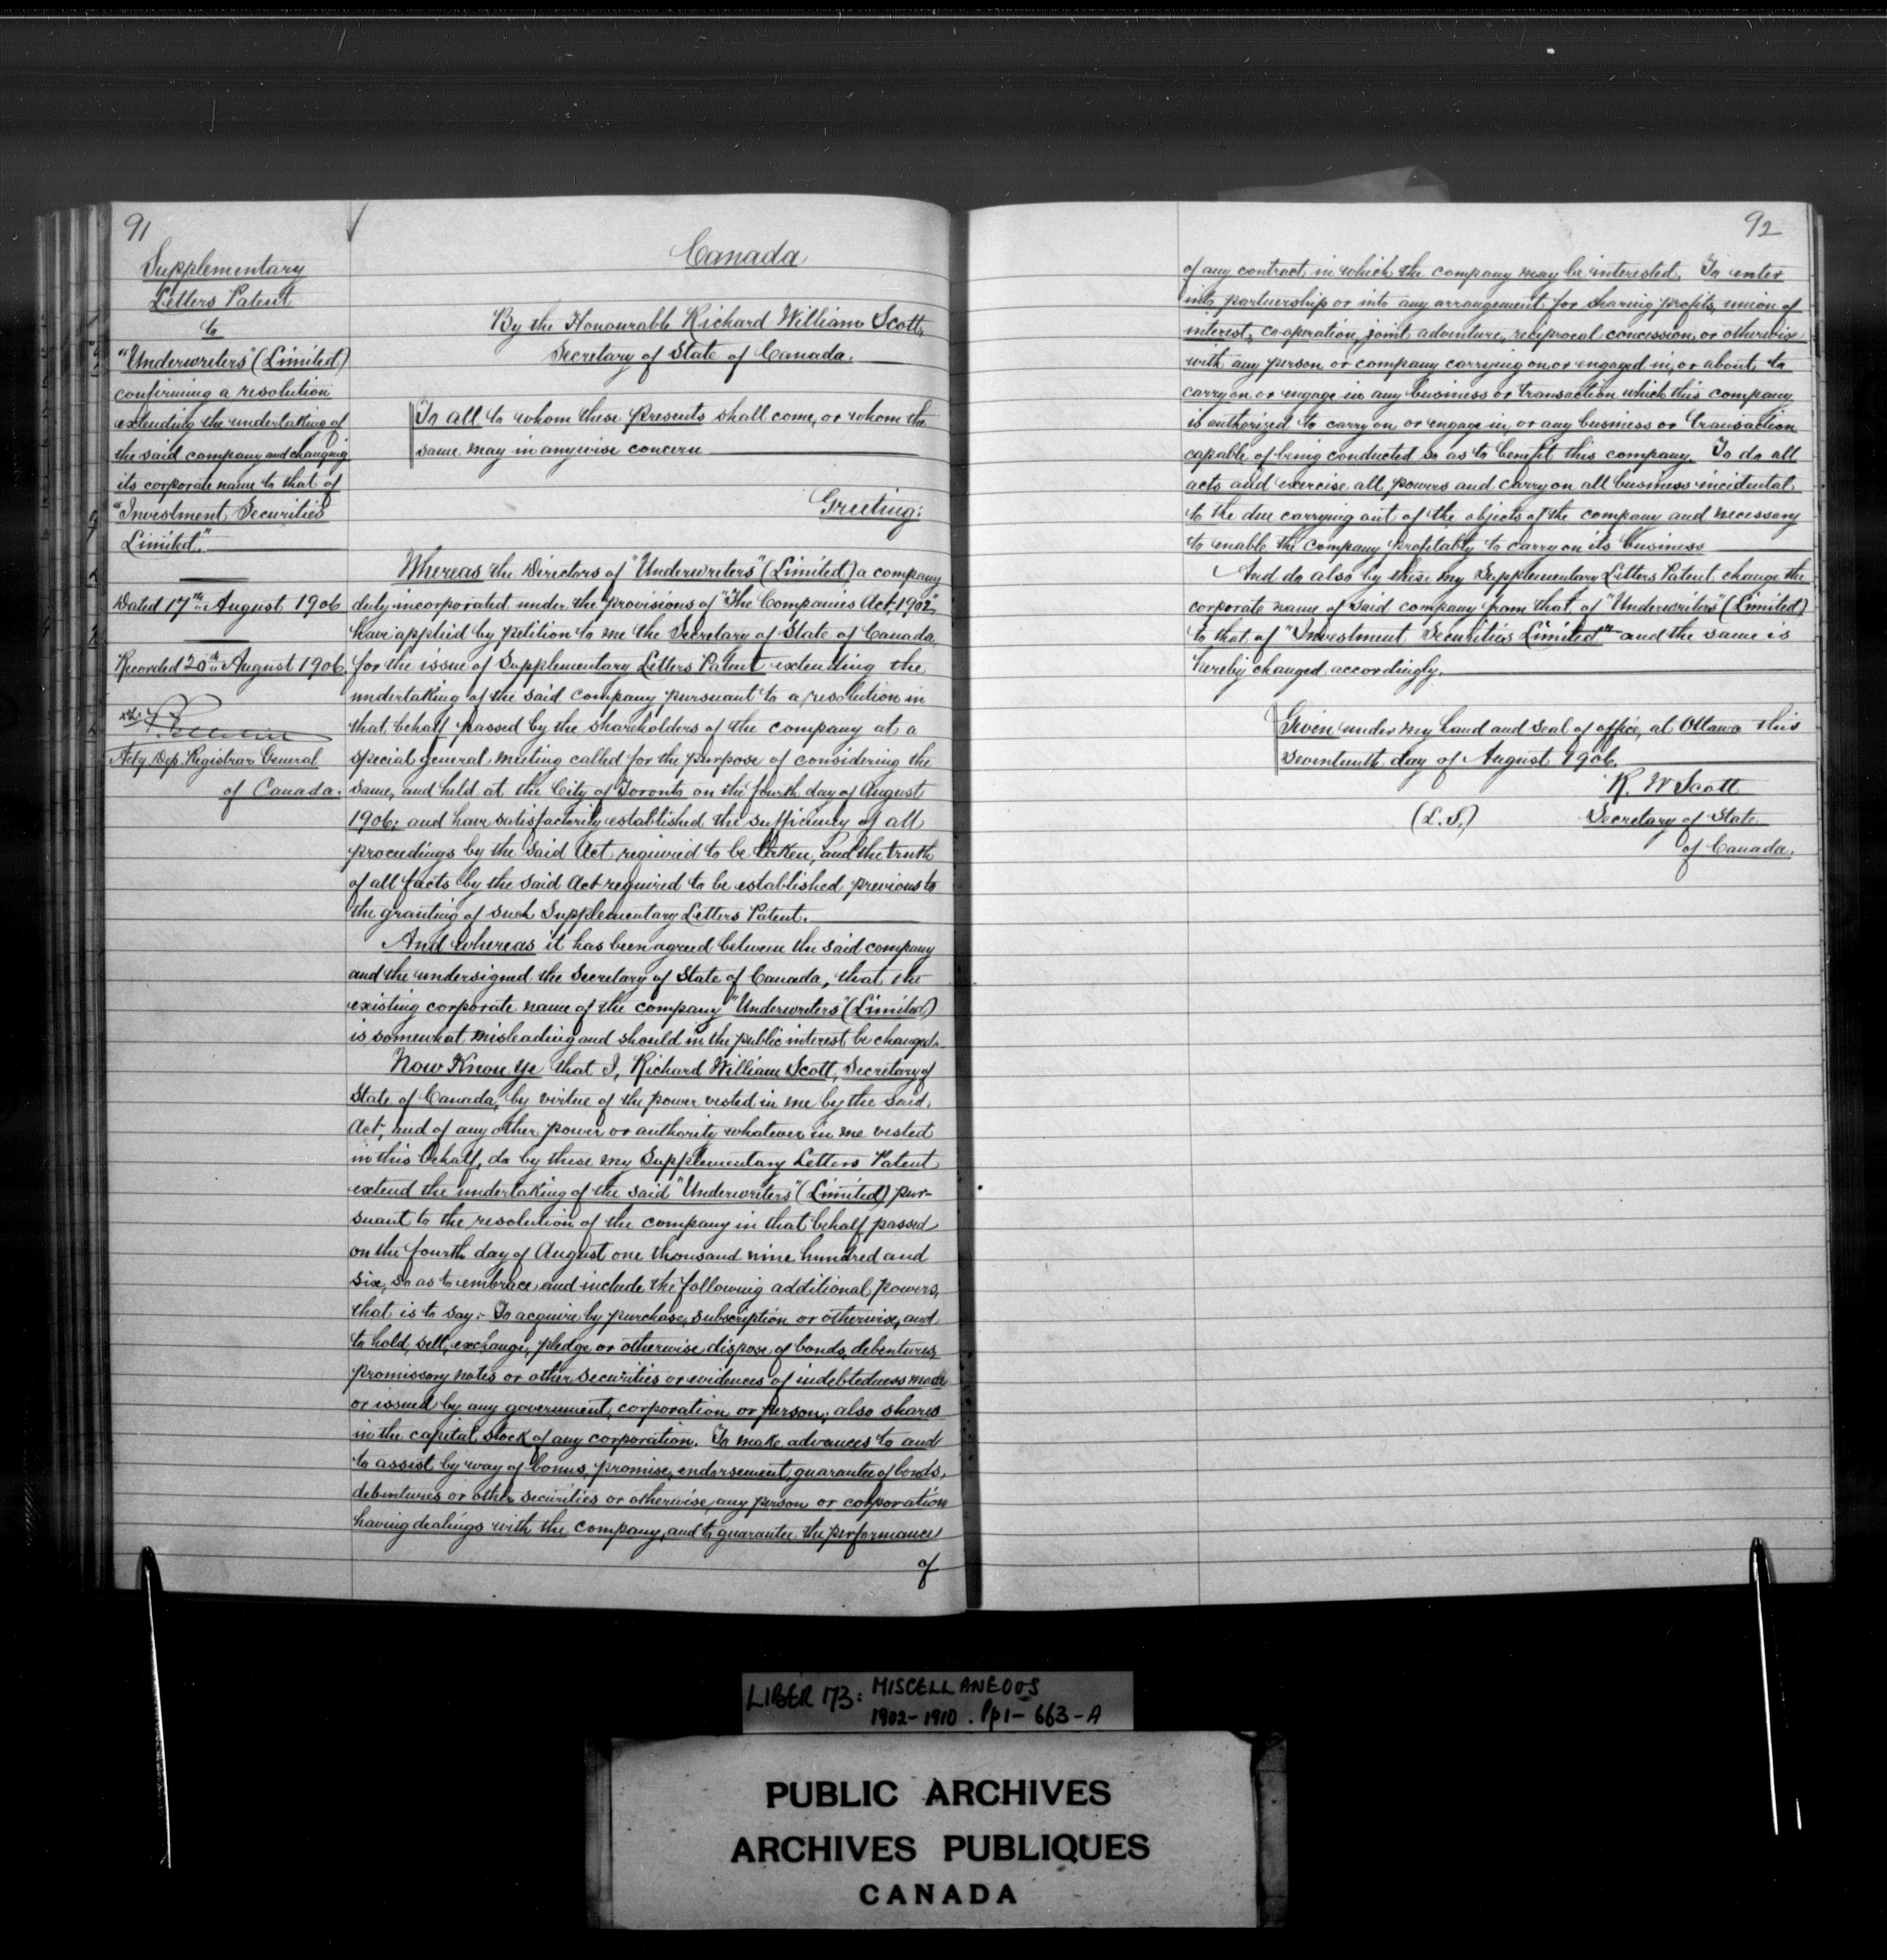 91
Supplementary
Letters Patent
to
"Underwriters" (Limited)
confirming a resolution
extending the undertaking of
the said company and changing
its corporate name to that of
"Investment Securities
Limited."
Dated 17th August 1906
Recorded 20th August 1906.
Act'g Dep. Registrar General
of Canada.
Canada
By the Honourable Richard William Scott,
Secretary of State of Canada.
To all to whom these presents shall come, or whom the
same may in anywise concern
Greeting:
Whereas the Directors of "Underwriters" (Limited) a company
duly incorporated under the provisions of "The Companies Act, 1902",
have applied by petition to me the Secretary of State of Canada
for the issue of Supplementary Letters Patent extending the
undertaking of the said company pursuant to a resolution in
that behalf passed by the shareholders of the company at a
special general meeting called for the purpose of considering the
same, and held at the City of Toronto on the fourth day of August
1906; and have satisfactorily established the sufficiency of all
proceedings by the said Act required to be taken, and the truth
of all facts by the said Act required to be established previous to
the granting of such Supplementary Letters Patent.
And whereas it has been agreed between the said company
and the undersigned the Secretary of State of Canada, that the
existing corporate name of the company "Underwriters" (Limited)
is somewhat misleading and should in the public interest be changed.
Now Know Ye that I, Richard William Scott, Secretary of
State of Canada, by virtue of the power vested in me by the said
Act, and of any other power or authority whatever in me vested
in this behalf, do by these my Supplementary Letters Patent
extend the undertaking of the said "Underwriters" (Limited) pur-
suant to the resolution of the company in that behalf passed
on the fourth day of August one thousand nine hundred and
six, so as to embrace and include the following additional powers,
that is to say:- To acquire by purchase, subscription or otherwise, and
to hold, sell, exchange, pledge or otherwise dispose of bonds, debentures,
promissory notes or other securities or evidences of indebtedness made
or issued by any government, corporation or person; also shares
in the capital stock of any corporation. To make advances to and
to assist by way of bonus, promise, endorsement, guarantee of bonds,
debentures or other securities or otherwise, any person or corporation
having dealings with the company, and to guarantee the performance
of
92
of any contract in which the company may be interested. To enter
into partnership or into any arrangement for sharing profits, union of
interest, co-operation, joint adventure, reciprocal concession, or otherwise
with any person or company carrying on or engaged in, or about to
carry on or engage in any business or transaction which this company
is authorized to carry on or engage in, or any business or transaction
capable of being conducted so as to benefit this company. To do all
acts and exercise all powers and carry on all business incidental
to the due carrying out of the objects of the company and necessary
to enable the company profitably to carry on its business
And do also by these my Supplementary Letters Patent change the
corporate name of said company from that of "Underwriters" (Limited)
to that of "Investment Securities Limited" and the same is
hereby changed accordingly.
Given under my hand and seal of office, at Ottawa this
seventeenth day of August 1906.
R. W Scott
(L.S.)
Secretary of State
of Canada.
LIBER 173: MISCELLANEOUS
1902-1910. Pp 1-663-A
PUBLIC ARCHIVES
ARCHIVES PUBLIQUES
CANADA